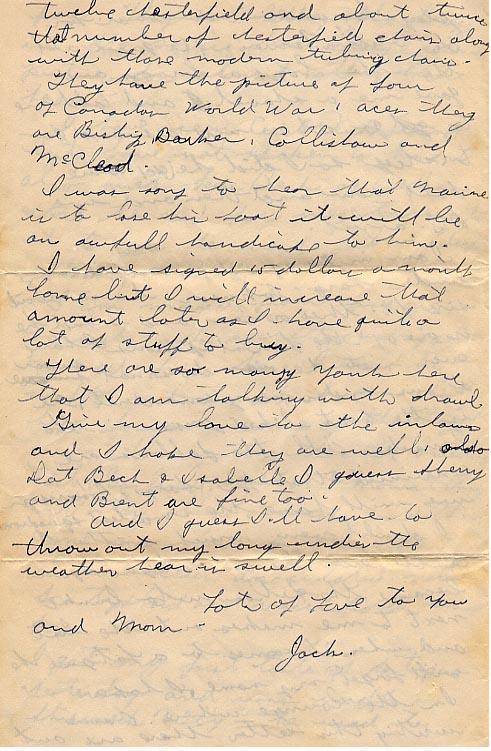 twelve chesterfield and about twice
that number of chesterfield chairs along
with those modern tubing chairs.
They have the picture of four
of Canadian World War 1 aces they
are Bishop, Barker, Collishaw and
McCleod.
I was sorry to hear that
is to lose his foot it will be
an awfull handicap to him.
I have signed 15 dollars a month
home but I will increase that
amount later as I have quite a
lot of stuff to buy.
There are so many Yanks here
that I am talking with drawl
Give my love to the inlaws
and I hope they are well, also
Dot Beck & Isabelle I guess Sherry
and Brent are fine too.
And I guess I'll have to
throw out my long undies the
weather hear is swell.
Lots of Love to You
and Mom.
Jack.